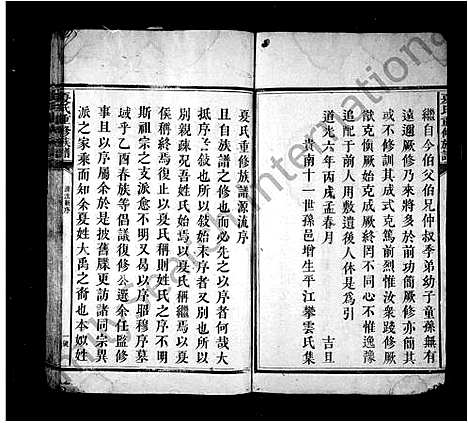 夏氏重修族譜
繼自今伯父伯兄仲叔季弟幼子童孫無有
遠邇厥修乃來將多於前功簡厥修亦簡其
或不修訓其成式克篤前烈惟汝衆踐修厥
猷克愼厥始克成厥終罔不同心不惟逸豫
追配于前人用敷遺後人休是爲引
道光六年丙戌孟春月　吉旦
南十一世孫邑增生平江攀雲氏集
夏氏重修族譜源流序
且自族譜之修也而必先之以序者何哉大
抵序予敍也所以敍始末序者又別也所以
別親疎况吾姓氏始焉以夏氏稱繼焉以
侯稱終焉復止以夏氏稱則姓氏之序不明
斯祖宗之支派愈不明又曷以序昭穆序墓
域乎乙酉春族等倡議復修公選余任監修
事且以序屬余於是披舊牒更訪諸同宗異
派之家乘而知余夏姓大禹之裔也本姒姓
夏氏重修族譜
源流序